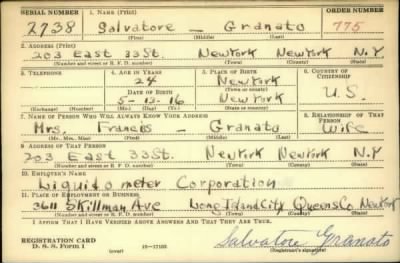 SERIAL NUMBER 1. NAME (Print) ORDER NUMBER
2738 Salvatore — Granato 775
(First) (Middle) (Last)
2. ADDRESS (Print)
203 East 33 St. New York New York N.Y
(Number and street or R. F. D. number) (Town) (County) (State)
3. TELEPHONE 4. AGE IN YEARS 5. PLACE OF BIRTH 6. COUNTRY OF CITIZENSHIP
24 New York
DATE OF BIRTH (Town or county)
5-13-16 New York U.S.
(Exchange) (Number) (Mo.) (Day) (Yr.) (State or country)
7. NAME OF PERSON WHO WILL ALWAYS KNOW YOUR ADDRESS 8. RELATIONSHIP OF THAT PERSON
Mrs. Frances — Granato Wife
(Mr., Mrs., Miss) (First) (Middle) (Last)
9. ADDRESS OF THAT PERSON
203 East 33 St. New York New York N.Y
(Number and street or R. F. D. number) (Town) (County) (State)
10. EMPLOYER'S NAME
Liquidometer Corporation
11. PLACE OF EMPLOYMENT OR BUSINESS
3611 Skillman Ave Long Island City Queens Co New York
(Number and street or R. F. D. number) (Town) (County) (State)
I AFFIRM THAT I HAVE VERIFIED ABOVE ANSWERS AND THAT THEY ARE TRUE.
REGISTRATION CARD
D. S. S. Form 1 (over) 16—17105
Salvatore Granato
(Registrant's signature)